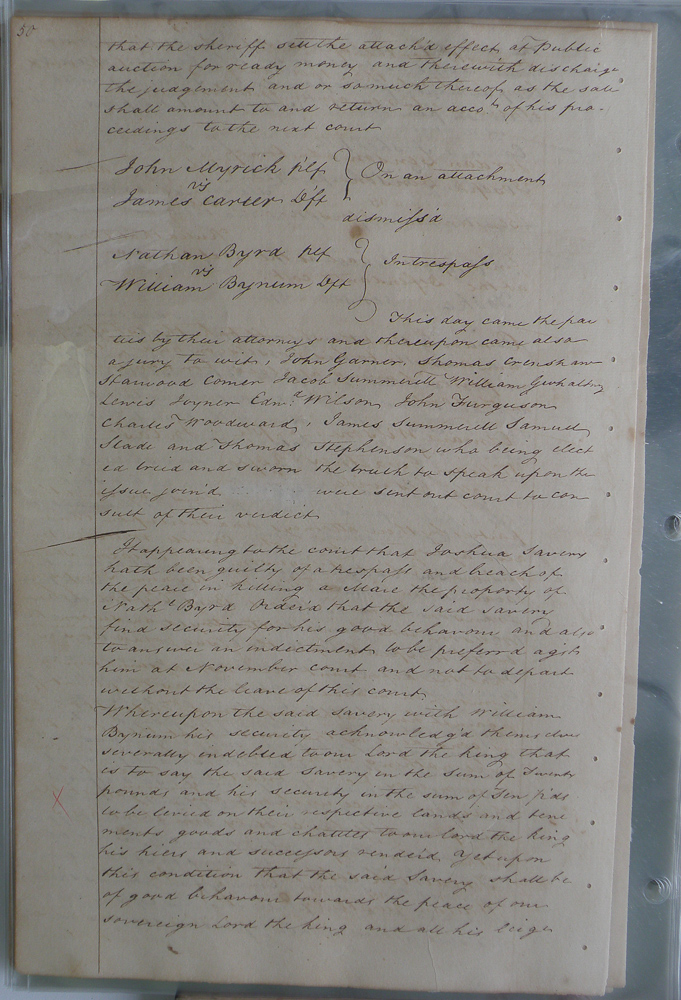 50
that the sheriff sell the attach'd effects at Public
auction for ready money and therewith discharge
the judgement and or so much thereof as the sale
shall amount to and return an acco.t of his pro-
ceedings to the next court
John Myrick plf } On an attachment
vs
James Carter Dft
dismiss'd
Nathan Byrd plf } In trespass
vs
William Bynum Dft
This day came the par
ties by their attorneys and thereupon came also
a jury to wit, John Garner, Thomas Crenshaw
Comer Jacob Summerell William
Lewis Joyner Edw.d Wilson, John Furguson
Charles Woodward, James Summerell Samuel
Slade and Thomas Stephenson who being elect
ed tried and sworn the truth to speak upon the
issue join'd were sent out court to con
sult of their verdict
It appearing to the court that Joshua Savery
hath been guilty of a trespass and breach of
the peace in killing a Mare the property of
Nath.l Byrd Order'd that the said Savery
find security for his good behavour and also
to answer an indictment to be preferr'd ag.st
him at November court and not to depart
without the leave of this court
Whereupon the said Savery with William
Bynum his security acknowledg'd themselves
severally indebted to our Lord the King that
is to say the said Savery in the sum of Twenty
pounds and his security in the sum of Ten p'ds
to be levied on their respective lands and tene
ments goods and chattles to our lord the king
his hiers and successors render'd. Yet upon
this condition that the said Savery shall be
of good behavour towards the peace of our
sovereign Lord the King and all his leige